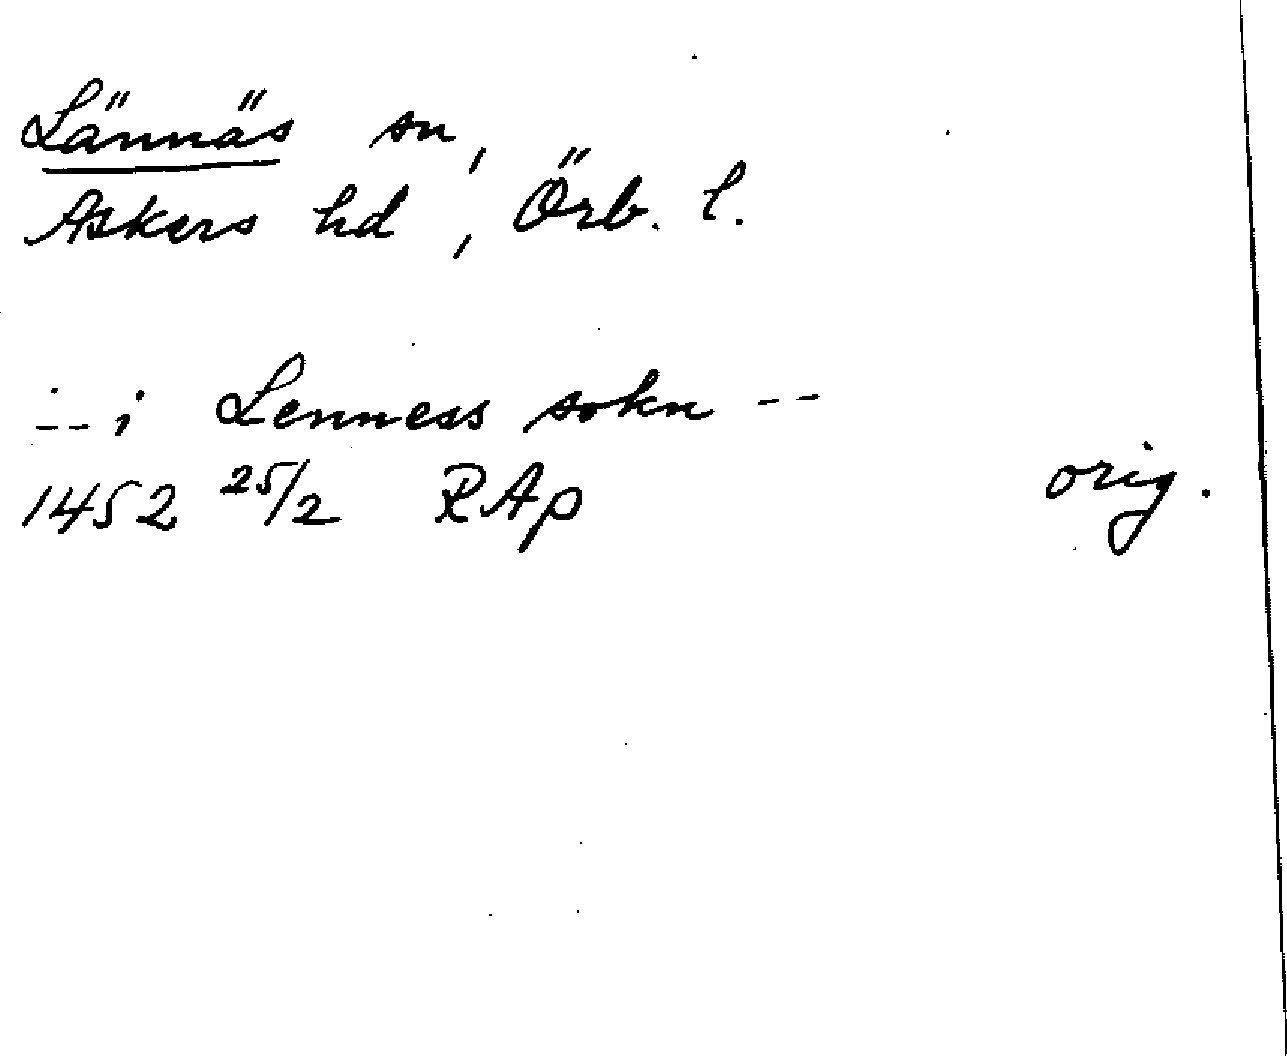 Lännäs sn,
Askers hd, Örb. l.
-- i Lenness sokn --
1452 25/2 RAp orig.